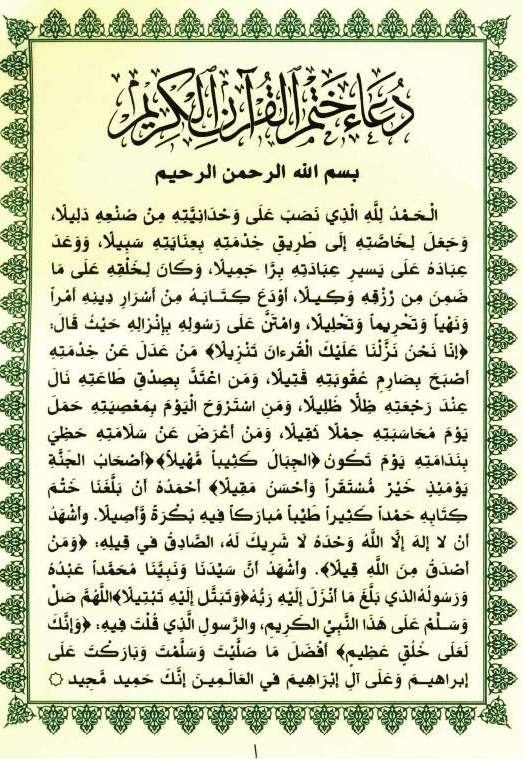 دُعَاءُ خَتْمِ ٱلْقُرْآنِ ٱلْكَرِيمِ
بسم الله الرحمن الرحيم
الْحَمْدُ لِلَّهِ الَّذِي نَصَبَ عَلَى وَحْدَانِيَّتِهِ مِنْ صُنْعِهِ دَلِيلًا،
وَجَعَلَ لِخَاصَّتِهِ إِلَى طَرِيقِ خِدْمَتِهِ بِعِنَايَتِهِ سَبِيلًا، وَوَعَدَ
عِبَادَهُ عَلَى يَسِيرِ عِبَادَتِهِ بِرًّا جَمِيلًا، وَكَانَ لِخَلْقِهِ عَلَى مَا
ضَمِنَ مِن رِزْقِهِ وَكِيلًا، أَوْدَعَ كِتَابَهُ مِنْ أَسْرَارِ دِينِهِ أَمْراً
وَنَهْياً وَتَحْرِيماً وَتَحْلِيلًا، وامْتَنَّ عَلَى رَسُولِهِ بِإِنْزَالِهِ حَيْثُ قَالَ:
﴿إِنَّا نَحْنُ نَزَّلْنَا عَلَيْكَ الْقُرءانَ تَنْزِيلًا﴾ مَنْ عَدَلَ عَنْ خِدْمَتِهِ
أَصْبَحَ بِصَارِمِ عُقُوبَتِهِ قَتِيلًا، وَمَن اعْتَدَّ بِصِدْقِ طَاعَتِهِ نَالَ
عِنْدَ رَجْعَتِهِ ظِلًّا ظَلِيلًا، وَمَنِ اسْتَرْوَحَ الْيَوْمَ بِمَعْصِيَتِهِ حَمَلَ
يَوْمَ مُحَاسَبَتِهِ حِمْلًا ثَقِيلًا، وَمَنْ أَعْرَضَ عَنْ سَلَامَتِهِ حَظِيَ
بِنَدَامَتِهِ يَوْمَ تَكُونُ ﴿الجِبَالُ كَثِيباً مَّهِيلاً﴾ ﴿أَصْحَابُ الجَنَّةِ
يَوْمَئِذٍ خَيْرٌ مُّسْتَقَرّاً وَأَحْسَنُ مَقِيلًا﴾ أَحْمَدُهُ أَنْ بَلَّغَنَا خَتْمَ
كِتَابِهِ حَمْداً كَثِيراً طَيِّباً مُبَارَكاً فِيهِ بُكْرَةً وَّأَصِيلًا. وأَشْهَدُ
أَنْ لَا إِلهَ إِلَّا اللَّهُ وَحْدَهُ لَا شَرِيكَ لَهُ، الصَّادِقُ في قِيلِهِ: ﴿وَمَنْ
أَصْدَقُ مِنَ اللَّهِ قِيلًا﴾. وأَشْهَدُ أَنَّ سَيِّدَنَا وَنَبِيَّنَا مُحَمَّداً عَبْدُهُ
وَرَسُولُهُ الذي بَلَّغَ مَا أَنْزَلَ إِلَيْهِ رَبُّهُ ﴿وَتَبَتَّلْ إِلَيْهِ تَبْتِيلًا﴾ اللَّهُمَّ صَلِّ
وَسَلِّمْ عَلَى هَذَا النَّبِيِّ الكَرِيمِ، والرَّسولِ الَّذِي قُلْتَ فِيهِ: ﴿وَإِنَّكَ
لَعَلَى خُلُقٍ عَظِيمٍ﴾ أَفْضَلَ مَا صَلَّيْتَ وَسَلَّمْتَ وَبَارَكْتَ عَلَى
إبراهيمَ وَعَلَى آلِ إِبْرَاهِيمَ في العَالَمِينَ إِنَّكَ حَمِيد مَّجِيد
١